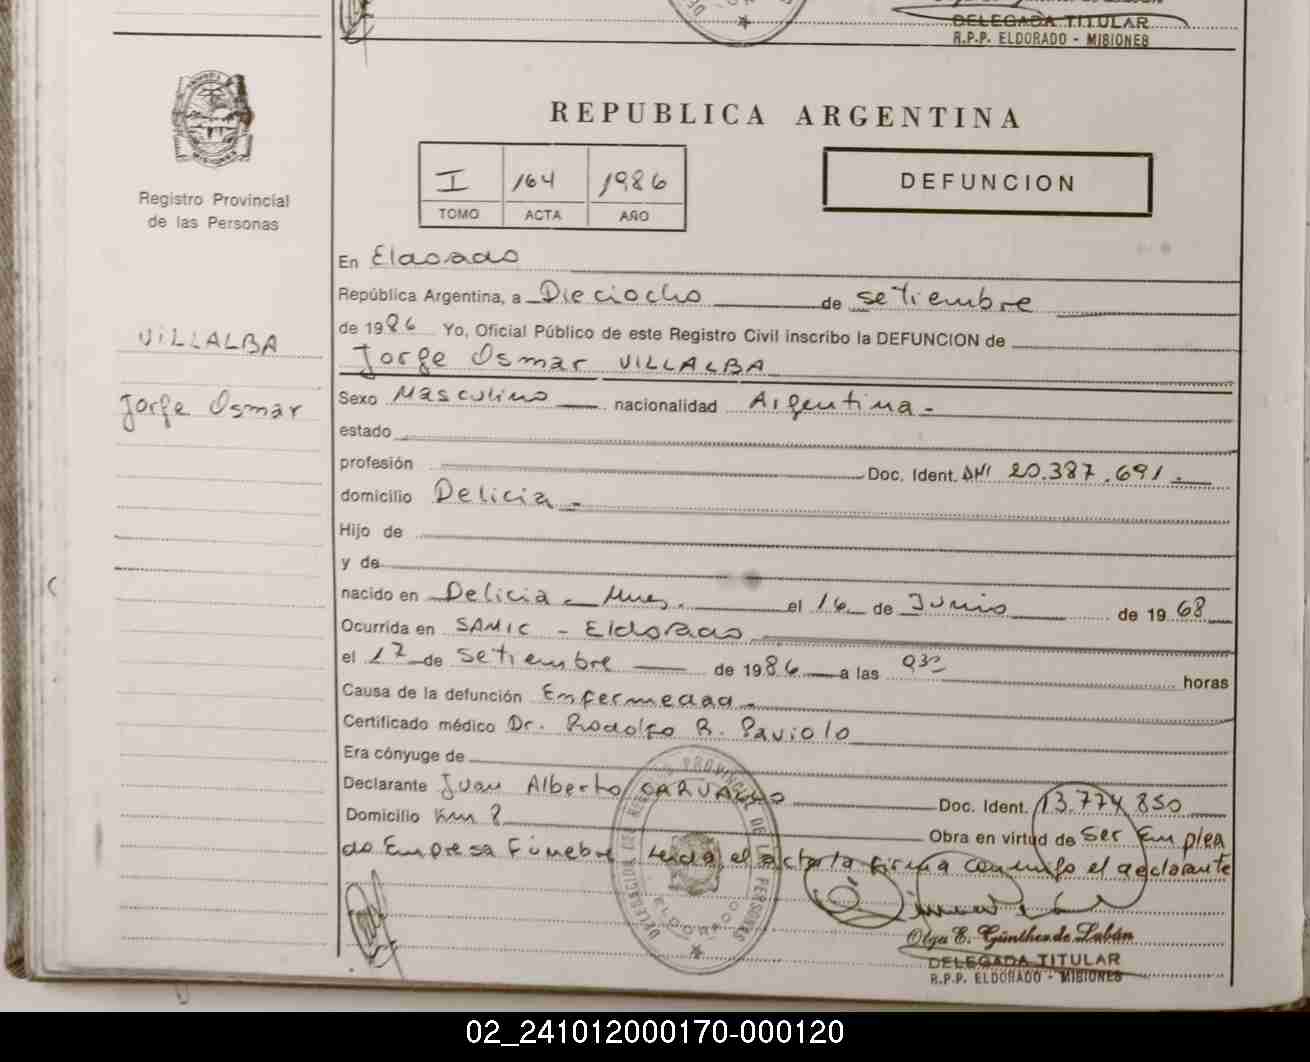 DELEGADA TITULAR
R.P.P. ELDORADO - MISIONES
REPUBLICA ARGENTINA
I 164 1986
TOMO ACTA AÑO
DEFUNCION
MISIONES
Registro Provincial
de las Personas
VILLALBA
Jorge Osmar
En Eldorado
República Argentina, a Dieciocho de setiembre
de 1986 Yo, Oficial Público de este Registro Civil inscribo la DEFUNCION de
Jorge Osmar VILLALBA
Sexo Masculino nacionalidad Argentina -
estado
profesión Doc. Ident. DNI 20.387.691.
domicilio Delicia -
Hijo de
y de
nacido en Delicia - Mnes. el 16 de Junio de 1968
Ocurrida en SAMIC - Eldorado
el 17 de setiembre de 1986 a las 9³⁰ horas
Causa de la defunción Enfermedad -
Certificado médico Dr. Rodolfo R. Paviolo
Era cónyuge de
Declarante Juan Alberto CARVALHO Doc. Ident. 13.774.850
Domicilio Km 8 Obra en virtud de ser emplea
do Empresa Fúnebre. Leida el acta la firma conmigo el declarante
DELEGACION DEL REGISTRO PROVINCIAL DE LAS PERSONAS
ELDORADO
Olga E. Günther de Labán
DELEGADA TITULAR
R.P.P. ELDORADO - MISIONES
02_241012000170-000120